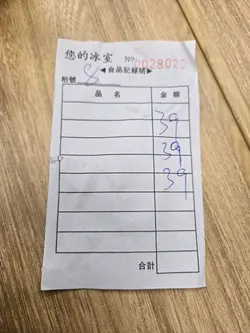 您的冰室 No 0028026
◀食品記録婧▶
枱號 8
品 名 金 額
39
39
39
合計